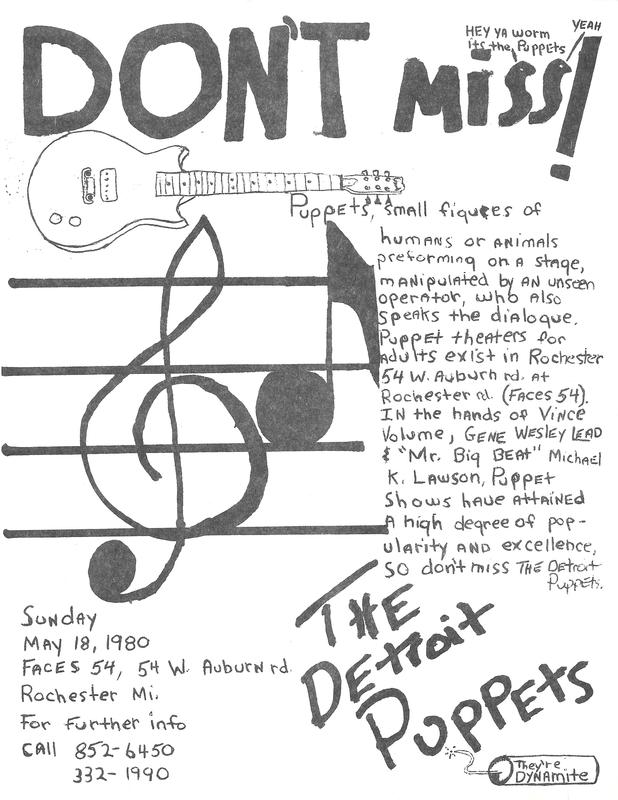 DON'T MISS!
HEY YA WORM
its the Puppets
YEAH
Puppets, small figures of
humans or animals
preforming on a stage,
manipulated by an unseen
operator, who also
speaks the dialogue.
Puppet theaters for
adults exist in Rochester
54 W. Auburn rd. at
Rochester rd. (Faces 54).
In the hands of Vince
Volume, Gene Wesley Lead
& "Mr. Big Beat" Michael
K. Lawson, Puppet
Shows have attained
a high degree of pop-
ularity and excellence,
so don't miss The Detroit
Puppets.
Sunday
May 18, 1980
Faces 54, 54 W. Auburn rd.
Rochester Mi.
For further info
Call 852-6450
332-1990
THE
Detroit
Puppets
They're
Dynamite